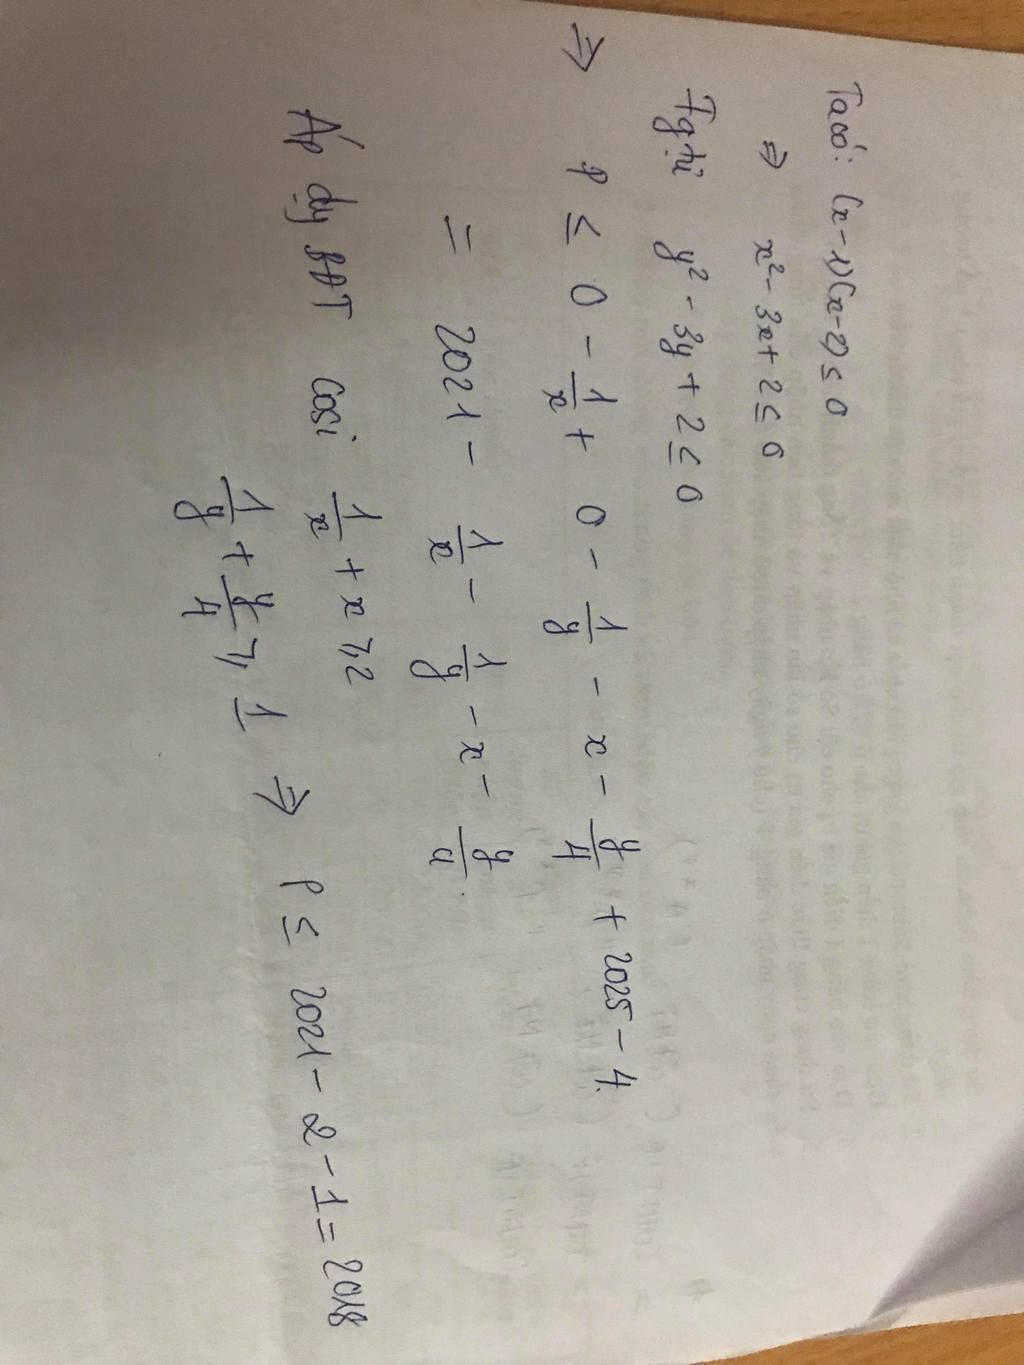 Ta có: (x-1)(x-2) ≤ 0
⇒ x² - 3x + 2 ≤ 0
Tg tự y² - 3y + 2 ≤ 0
⇒ P ≤ 0 - 1/x + 0 - 1/y - x - y/4 + 2025 - 4.
= 2021 - 1/x - 1/y - x - y/4.
Áp dụ BĐT cosi 1/x + x ≥ 2
1/y + y/4 ≥ 1 ⇒ P ≤ 2021 - 2 - 1 = 2018